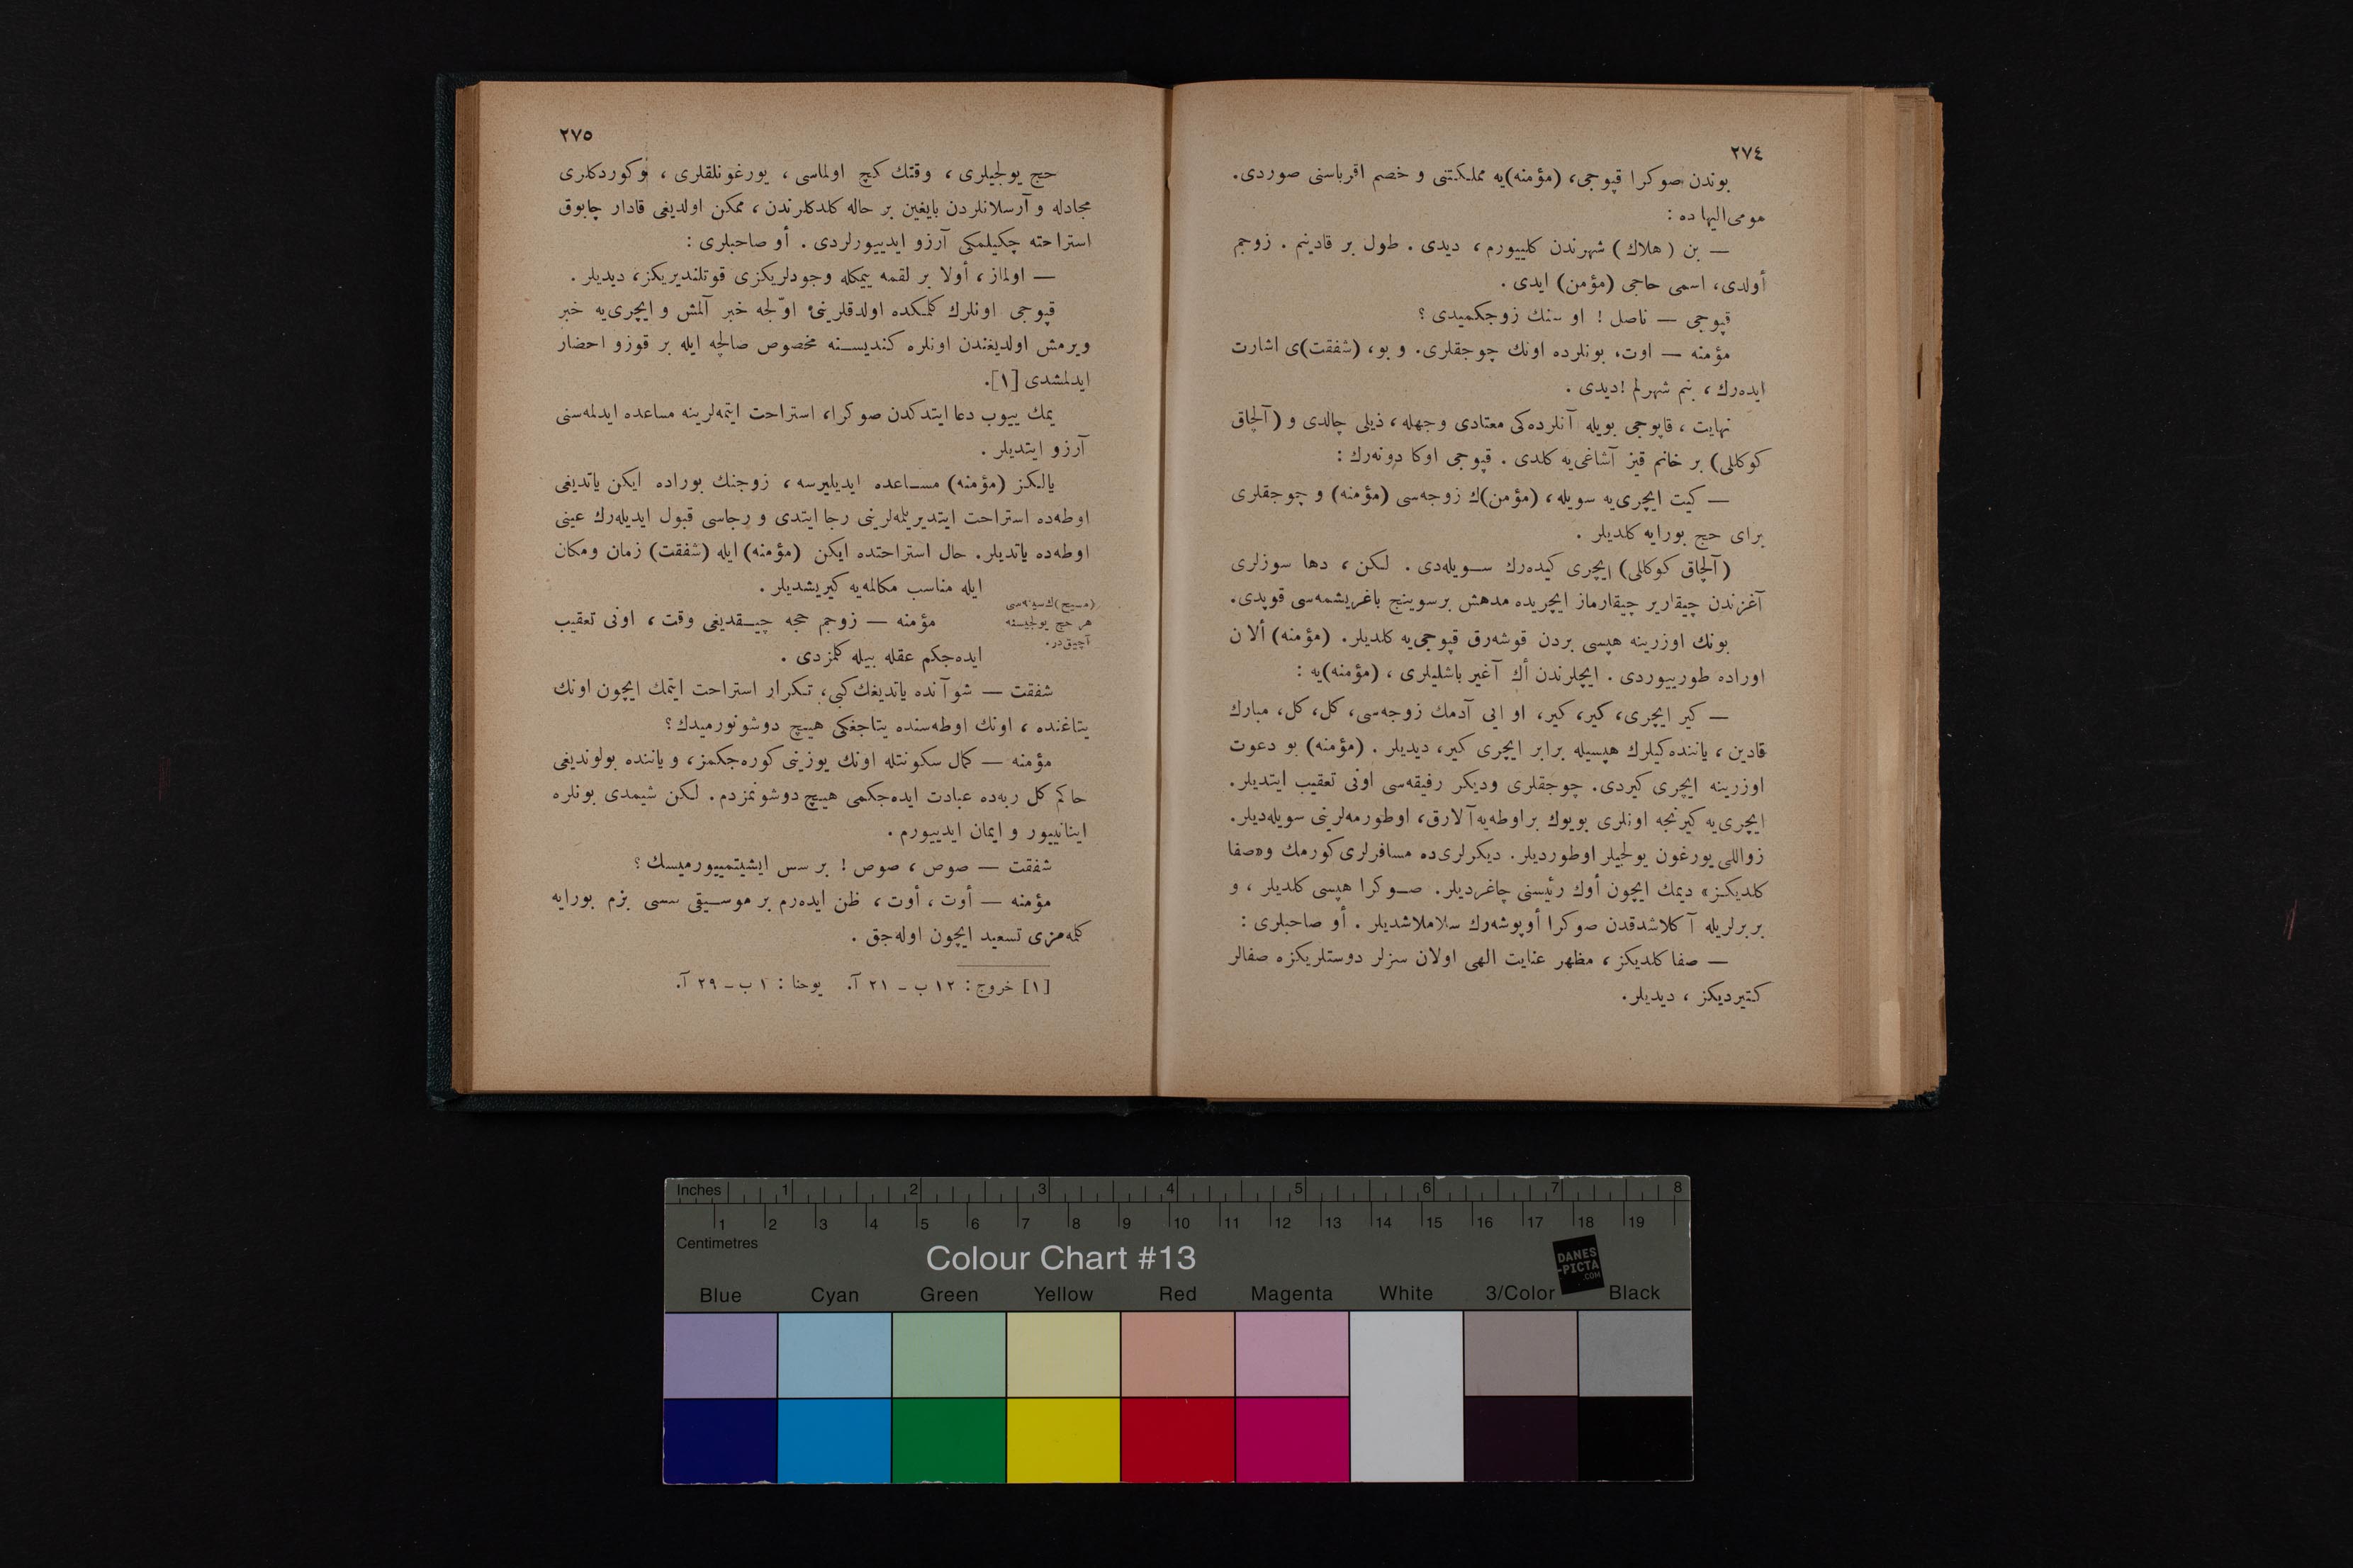 ٢٧٤
بوندن صوكرا قپوجی، (مؤمنه)یه مملكتنی و خصم اقرباسنی صوردی.
مومی‌الیها ده :
— بن ( هلاك ) شهرندن كلییورم ، دیدی . طول بر قادینم . زوجم
أولدی، اسمی حاجی (مؤمن) ایدی .
قپوجی — ناصل ! او سنك زوجكمیدی ؟
مؤمنه — اوت، بونلرده اونك چوجقلری. و بو، (شفقت)ی اشارت
ایده‌رك ، بنم شهرلم ! دیدی .
نهایت ، قاپوجی بویله آنلرده‌كی معتادی وجهله ، ذیلی چالدی و (آلچاق
كوكللی) بر خانم قیز آشاغی‌یه كلدی . قپوجی اوكا دونه‌رك :
— كیت ایچری‌یه سویله، (مؤمن)ك زوجه‌سی (مؤمنه) و چوجقلری
برای حج بورایه كلدیلر .
(آلچاق كوكللی) ایچری كیده‌رك سویله‌دی . لكن ، دها سوزلری
آغزندن چیقاریر چیقارماز ایچریده مدهش برسوینج باغریشمه‌سی قوپدی.
بونك اوزرینه هپسی بردن قوشه‌رق قپوجی‌یه كلدیلر. (مؤمنه) ألان
اوراده طورییوردی . ایچلرندن أك آغیر باشلیلری ، (مؤمنه)یه :
— كیر ایچری، كیر، كیر، او ایی آدمك زوجه‌سی، كل، كل، مبارك
قادین ، یاننده‌كیلرك هپسیله برابر ایچری كیر، دیدیلر . (مؤمنه) بو دعوت
اوزرینه ایچری كیردی. چوجقلری ودیكر رفیقه‌سی اونی تعقیب ایتدیلر.
ایچری‌یه كیرنجه اونلری بویوك براوطه‌یه آلارق، اوطورمه‌لرینی سویله‌دیلر.
زواللی یورغون یولجیلر اوطوردیلر. دیكرلری‌ده مسافرلری كورمك و«صفا
كلدیكز» دیمك ایچون أوك رئیسنی چاغردیلر. صوكرا هپسی كلدیلر ، و
بربرلریله آكلاشدقدن صوكرا أوپوشه‌رك سلاملاشدیلر . أو صاحبلری :
— صفا كلدیكز ، مظهر عنایت الهی اولان سزلر دوستلریكزه صفالر
كتیردیكز ، دیدیلر.
٢٧٥
حج یولجیلری ، وقتك كچ اولماسی ، یورغونلقلری ، وكوردكلری
مجادله و آرسلانلردن بایغین بر حاله كلدكلرندن ، ممكن اولدیغی قادار چابوق
استراحته چكیلمكی آرزو ایدییورلردی . أو صاحبلری :
— اولماز ، أولا بر لقمه یمكله وجودلریكزی قوتلندیریكز، دیدیلر .
قپوجی اونلرك كلمكده اولدقلرینی اوّلجه خبر آلمش و ایچری‌یه خبر
ویرمش اولدیغندن اونلره كندیسنه مخصوص صالچه ایله بر قوزو احضار
ایدلمشدی [١].
یمك ییوب دعا ایتدكدن صوكرا، استراحت ایتمه‌لرینه مساعده ایدلمه‌سنی
آرزو ایتدیلر .
یالكز (مؤمنه) مساعده ایدیلیرسه ، زوجنك بوراده ایكن یاتدیغی
اوطه‌ده استراحت ایتدیریلمه‌لرینی رجا ایتدی و رجاسی قبول ایدیله‌رك عینی
اوطه‌ده یاتدیلر. حال استراحتده ایكن (مؤمنه) ایله (شفقت) زمان ومكان
ایله مناسب مكالمه‌یه كیریشدیلر .
(مسیح)ك سینه‌سی
هر حج یولجیسنه
آچیق‌در.
مؤمنه — زوجم حجه چیقدیغی وقت ، اونی تعقیب
ایده‌جكم عقله بیله كلمزدی .
شفقت — شو آنده یاتدیغك كبی، تكرار استراحت ایتمك ایچون اونك
یتاغنده ، اونك اوطه‌سنده یتاجغكی هیچ دوشونورمیدك ؟
مؤمنه — كمال سكونتله اونك یوزینی كوره‌جكمز، و یاننده بولوندیغی
حاكم كل ربه‌ده عبادت ایده‌جكمی هیچ دوشونمزدم. لكن شیمدی بونلره
اینانییور و ایمان ایدییورم .
شفقت — صوص ، صوص ! بر سس ایشیتمییورمیسك ؟
مؤمنه — أوت ، أوت ، ظن ایده‌رم بر موسیقی سسی بزم بورایه
كلمه‌مزی تسعید ایچون اوله‌جق .
[١] خروج : ١٢ ب ـ ٢١ آ. یوحنا : ١ ب ـ ٢٩ آ.
Inches 1 2 3 4 5 6 7 8
1 2 3 4 5 6 7 8 9 10 11 12 13 14 15 16 17 18 19
Centimetres
Colour Chart #13
DANES
-PICTA
.COM
Blue Cyan Green Yellow Red Magenta White 3/Color Black